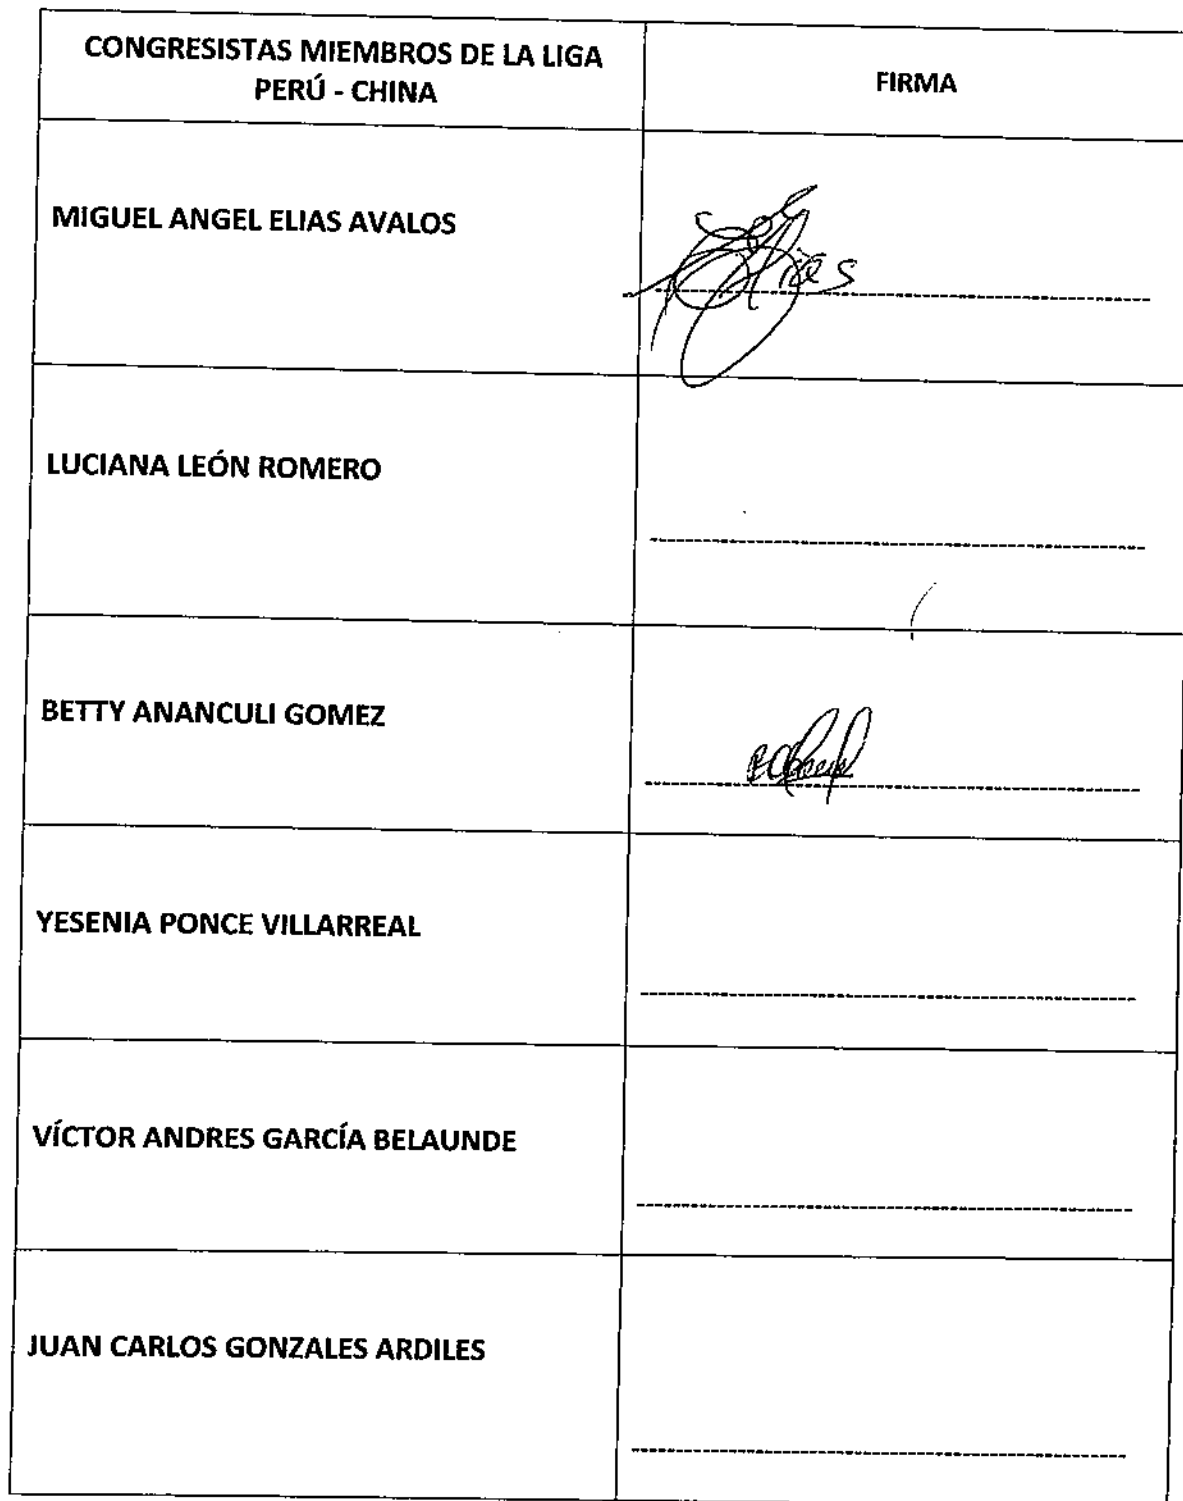 CONGRESISTAS MIEMBROS DE LA LIGA
PERÚ - CHINA
FIRMA
MIGUEL ANGEL ELIAS AVALOS
LUCIANA LEÓN ROMERO
BETTY ANANCULI GOMEZ
YESENIA PONCE VILLARREAL
VÍCTOR ANDRES GARCÍA BELAUNDE
JUAN CARLOS GONZALES ARDILES